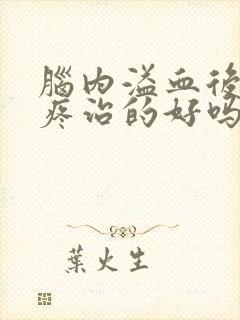 腦內溢血後
疼治的好嗎
葉火生